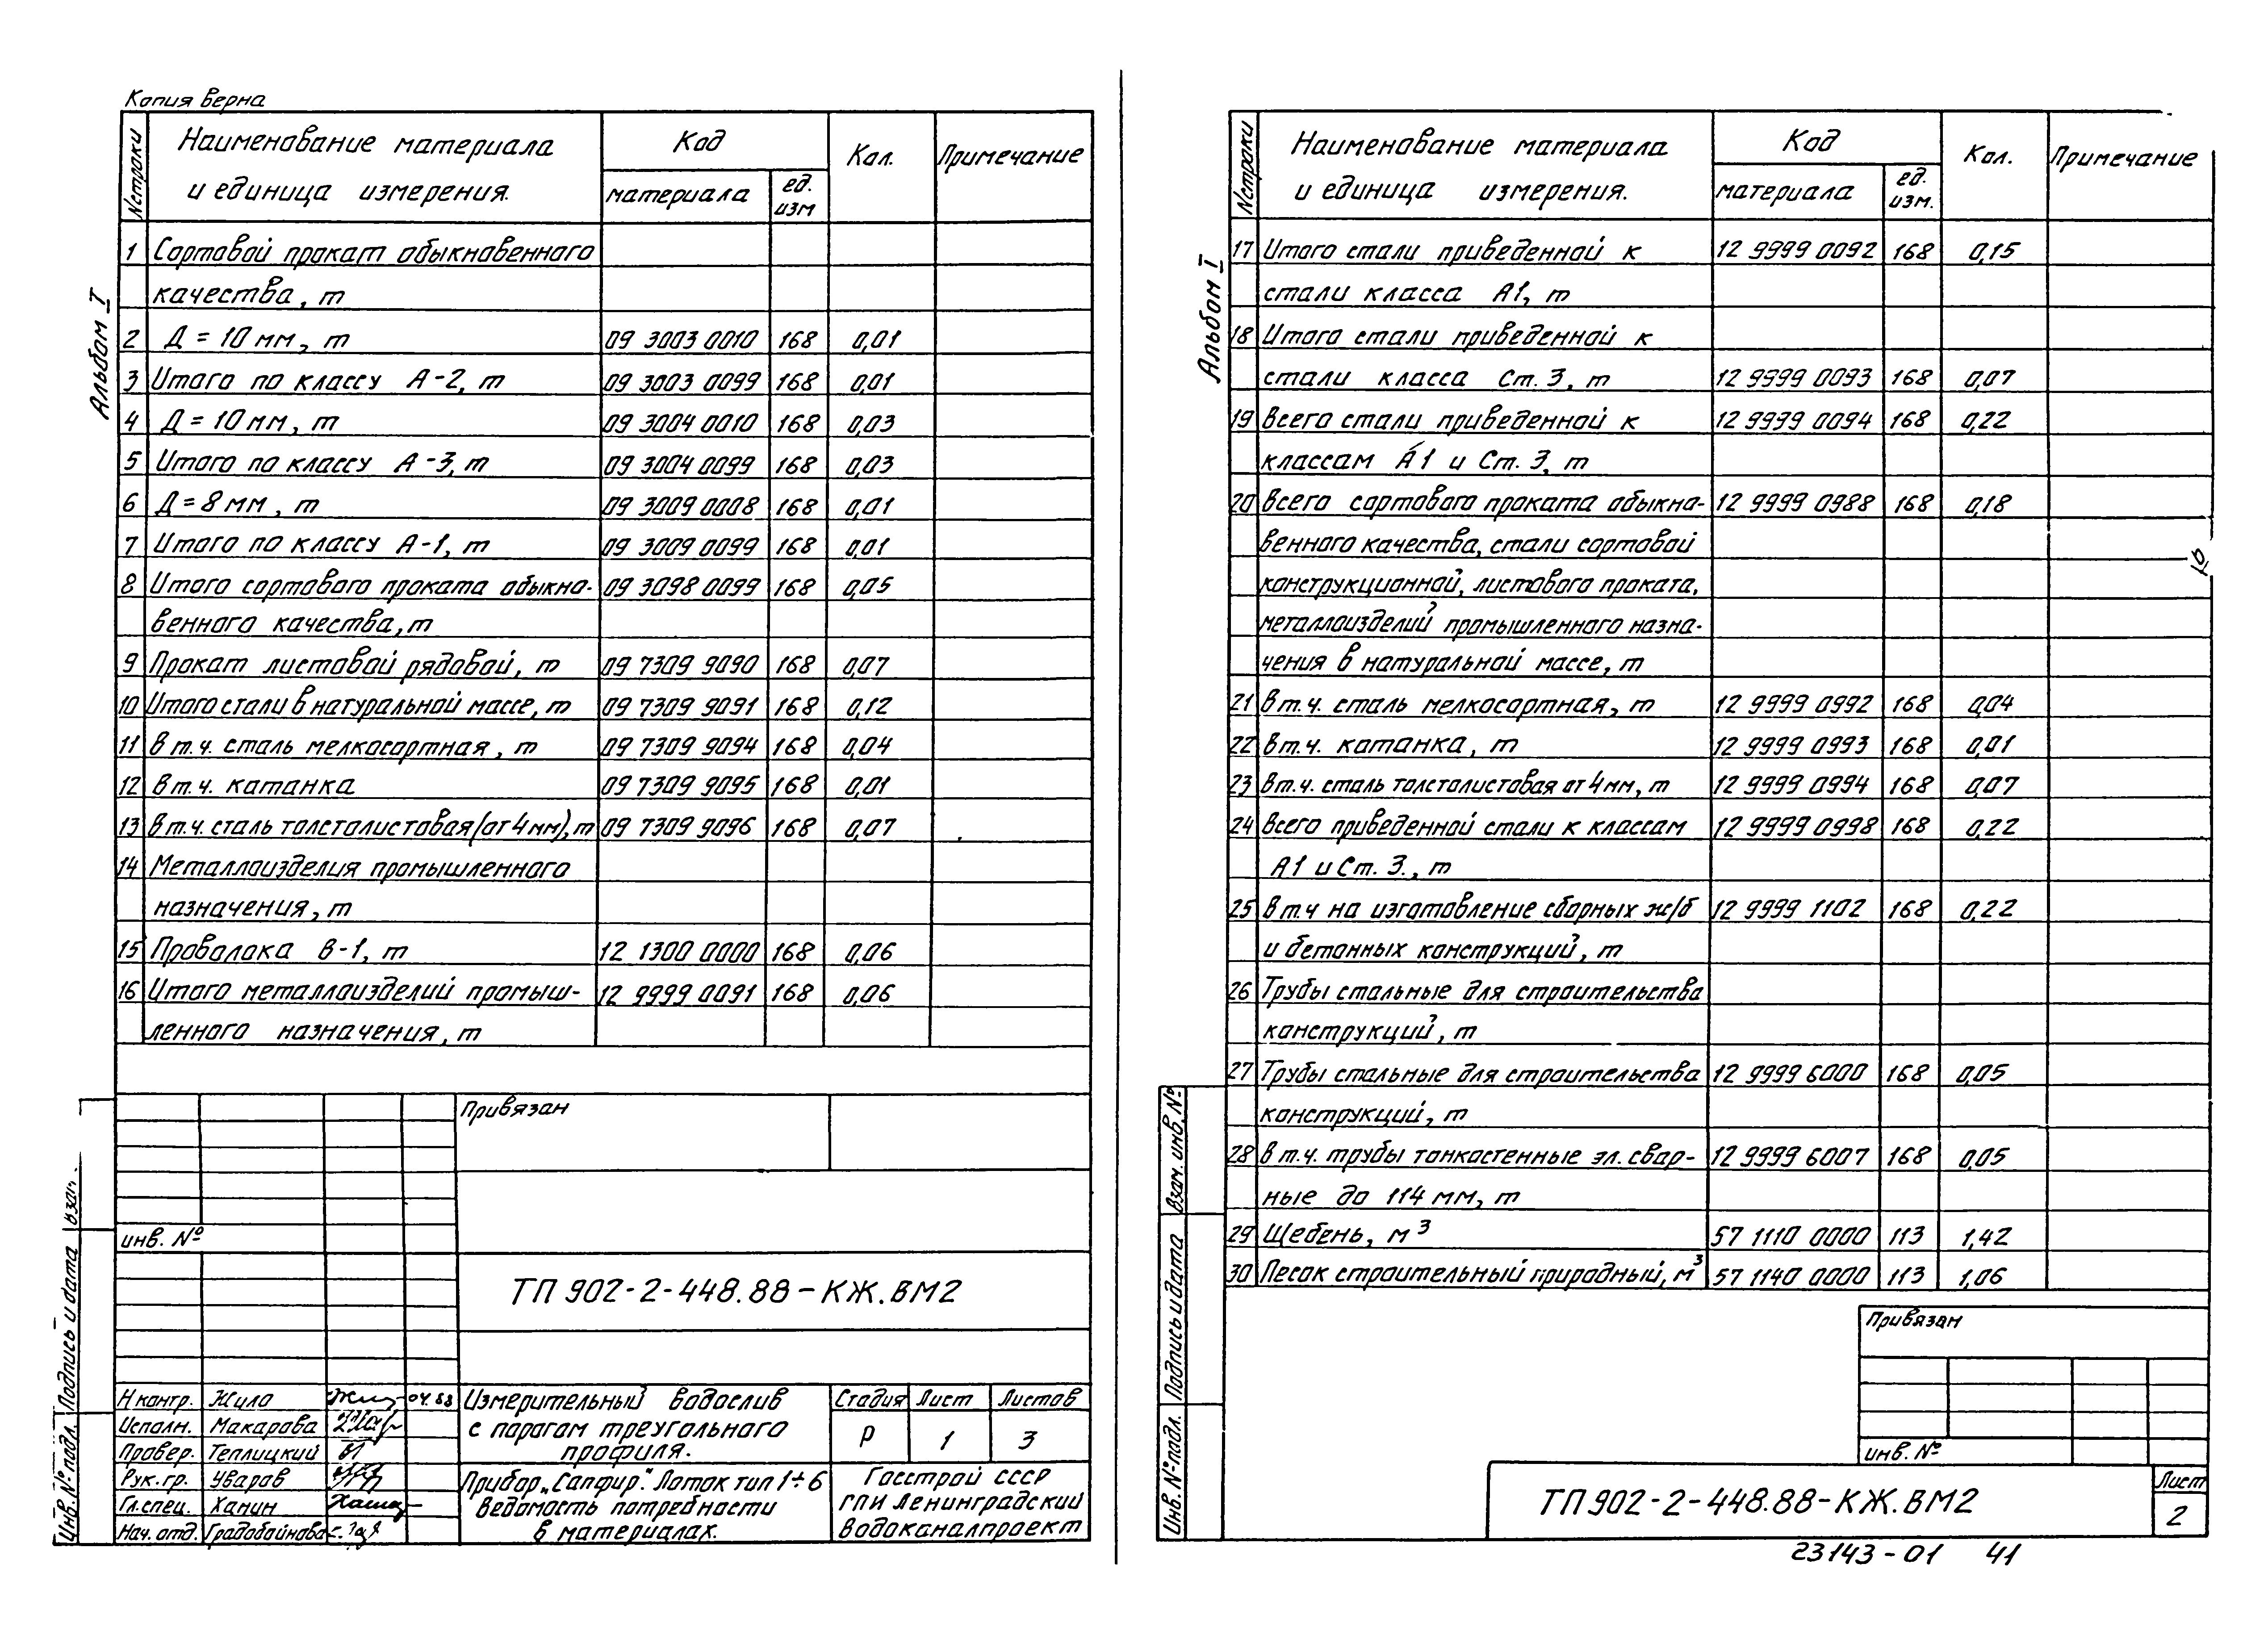 Копия верна
Альбом I
№ строки
Наименование материала и единица измерения.
Код
материала
ед. изм
Кол.
Примечание
1 Сортовой прокат обыкновенного
качества, т
2 Д = 10 мм, т 09 3003 0010 168 0,01
3 Итого по классу А-2, т 09 3003 0099 168 0,01
4 Д = 10 мм, т 09 3004 0010 168 0,03
5 Итого по классу А-3, т 09 3004 0099 168 0,03
6 Д = 8 мм, т 09 3009 0008 168 0,01
7 Итого по классу А-1, т 09 3009 0099 168 0,01
8 Итого сортового проката обыкно- 09 3098 0099 168 0,05
венного качества, т
9 Прокат листовой рядовой, т 09 7309 9090 168 0,07
10 Итого стали в натуральной массе, т 09 7309 9091 168 0,12
11 в т.ч. сталь мелкосортная, т 09 7309 9094 168 0,04
12 в т.ч. катанка 09 7309 9095 168 0,01
13 в т.ч. сталь толстолистовая (от 4 мм), т 09 7309 9096 168 0,07
14 Металлоизделия промышленного
назначения, т
15 Проволока В-1, т 12 1300 0000 168 0,06
16 Итого металлоизделий промыш- 12 9999 0091 168 0,06
ленного назначения, т
Привязан
инв. №
ТП 902-2-448.88-КЖ.ВМ2
Н контр. Жила 04.88
Исполн. Макарова
Провер. Теплицкий
Рук. гр. Уваров
Гл. спец. Ханин
Нач. отд. Градобойнова
Измерительный водослив
с порогом треугольного
профиля.
Стадия Лист Листов
Р 1 3
Прибор „Сапфир". Лоток тип 1÷6
Ведомость потребности
в материалах.
Госстрой СССР
ГПИ Ленинградский
Водоканалпроект
Взам.
Подпись и дата
Инв. № подл.
Альбом I
№ строки
Наименование материала и единица измерения.
Код
материала
ед. изм.
Кол.
Примечание
17 Итого стали приведенной к 12 9999 0092 168 0,15
стали класса А1, т
18 Итого стали приведенной к
стали класса Ст. 3, т 12 9999 0093 168 0,07
19 Всего стали приведенной к 12 9999 0094 168 0,22
классам А1 и Ст. 3, т
20 Всего сортового проката обыкно- 12 9999 0988 168 0,18
венного качества, стали сортовой
конструкционной, листового проката,
металлоизделий промышленного назна-
чения в натуральной массе, т
21 в т.ч. сталь мелкосортная, т 12 9999 0992 168 0,04
22 в т.ч. катанка, т 12 9999 0993 168 0,01
23 в т.ч. сталь толстолистовая от 4 мм, т 12 9999 0994 168 0,07
24 Всего приведенной стали к классам 12 9999 0998 168 0,22
А1 и Ст. 3., т
25 в т.ч на изготовление сборных ж/б 12 9999 1102 168 0,22
и бетонных конструкций, т
26 Трубы стальные для строительства
конструкций, т
27 Трубы стальные для строительства 12 9999 6000 168 0,05
конструкций, т
28 в т.ч. трубы тонкостенные эл. свар- 12 9999 6007 168 0,05
ные до 114 мм, т
29 Щебень, м³ 57 1110 0000 113 1,42
30 Песок строительный природный, м³ 57 1140 0000 113 1,06
40
Привязан
инв. №
Взам. инв. №
Подпись и дата
Инв. № подл.
ТП 902-2-448.88-КЖ.ВМ2
Лист
2
23143-01 41